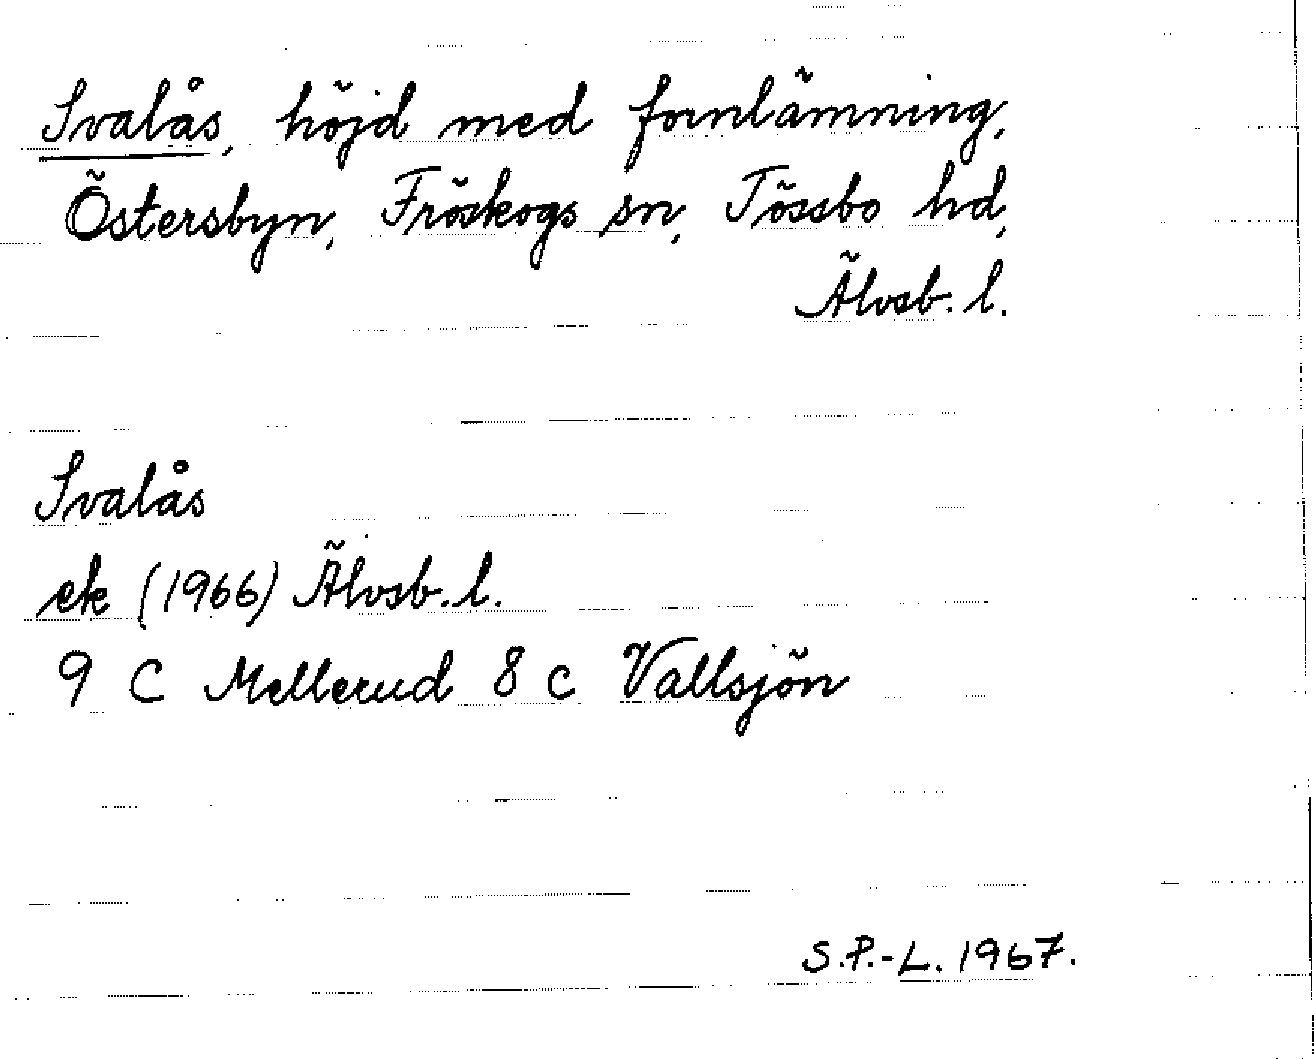 Svalås, höjd med fornlämning,
Östersbyn, Fröskogs sn, Tössbo hd,
Älvsb. l.
Svalås
ek (1966) Älvsb. l.
9 C Mellerud 8 c Vallsjön
S.P.-L. 1967.